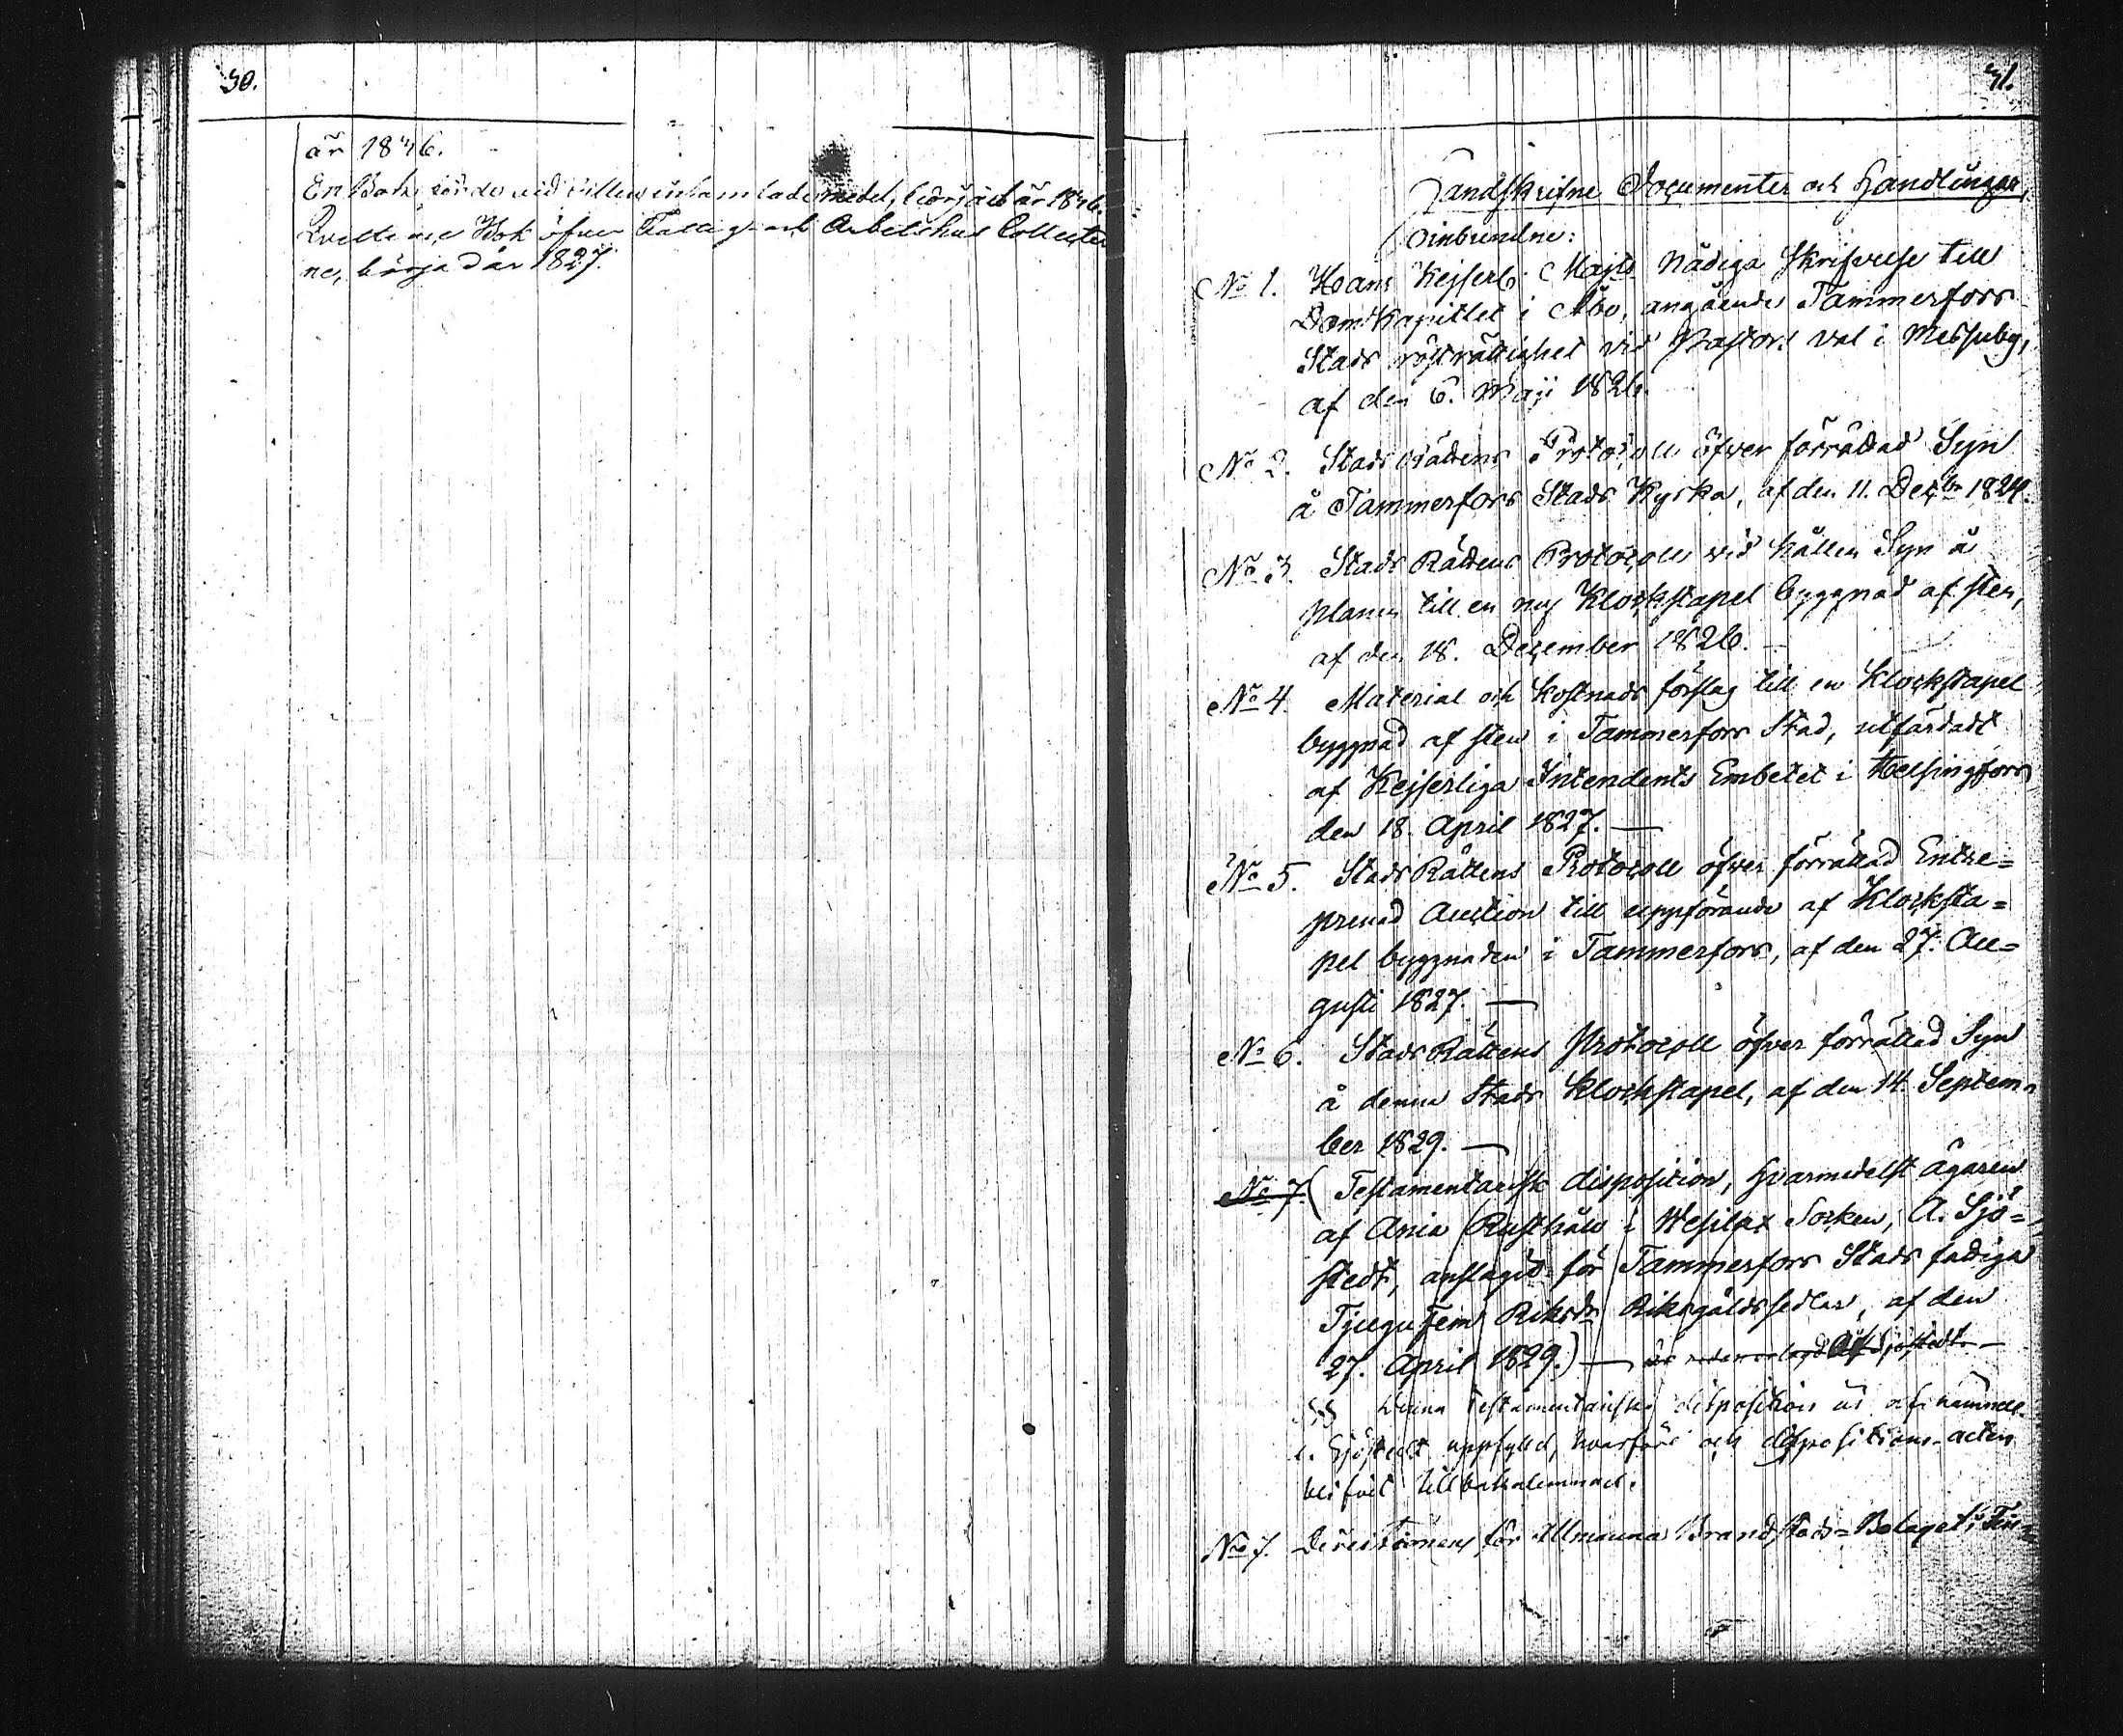 30.
år 1846.
En Bok öfver vid insamlade medel, börjad år 1846.
Qvittence Bok öfver Fattig- och Arbetshus Collecter
ne, börjad år 1827.
31.
Handskrifne Documenter och Handlingar,
oinbundne:
No 1. Hans Kejserl. Majts Nådiga Skrifvelse till
Domkapitlet i Åbo, angående Tammerfors
Stads rösträttighet vid Pastors val i Messuby,
af den 6. Maji 1826.
No 2. Stads Rättens Protocoll öfver förrättad Syn
å Tammerfors Stads Kyrka, af den 11. Decbr 1824.
No 3. Stads Rättens Protocoll vid hållen Syn å
planen till en ny Klockstapel byggnad af sten,
af den 18. December 1826.
No 4. Material och Kostnads förslag till en Klockstapel
byggnad af sten i Tammerfors Stad, utfärdadt
af Kejserliga Intendents Embetet i Helsingfors
den 18. April 1827. —
No 5. Stads Rättens Protocoll öfver förrättad Entre=
prenad Auction till uppförande af Klocksta=
pel byggnaden i Tammerfors, af den 27. Au=
gusti 1827. —
No 6. Stads Rättens Protocoll öfver förrättad Syn
å denna Stads Klockstapel, af den 14. Septem=
ber 1829. —
No 7. (Testamentarisk disposition, hvarmedelst ägaren
af Ania Rusthåll i Wesilax Socken, A. Sjö=
stedt, anslagit för Tammerfors Stads fattiga
Tjugufem Riksdr Riksgäldssedlar, af den
27. April 1829.) — är redan Af Sjöstedt. —
Denna Testamentariska disposition är af nämnde
Sjöstedt uppfylld, hvarföre och dispositions-acten
blifvit tillbakalemnad.
No 7. Directionens för Allmänna Brandstods-Bolaget i Fin=